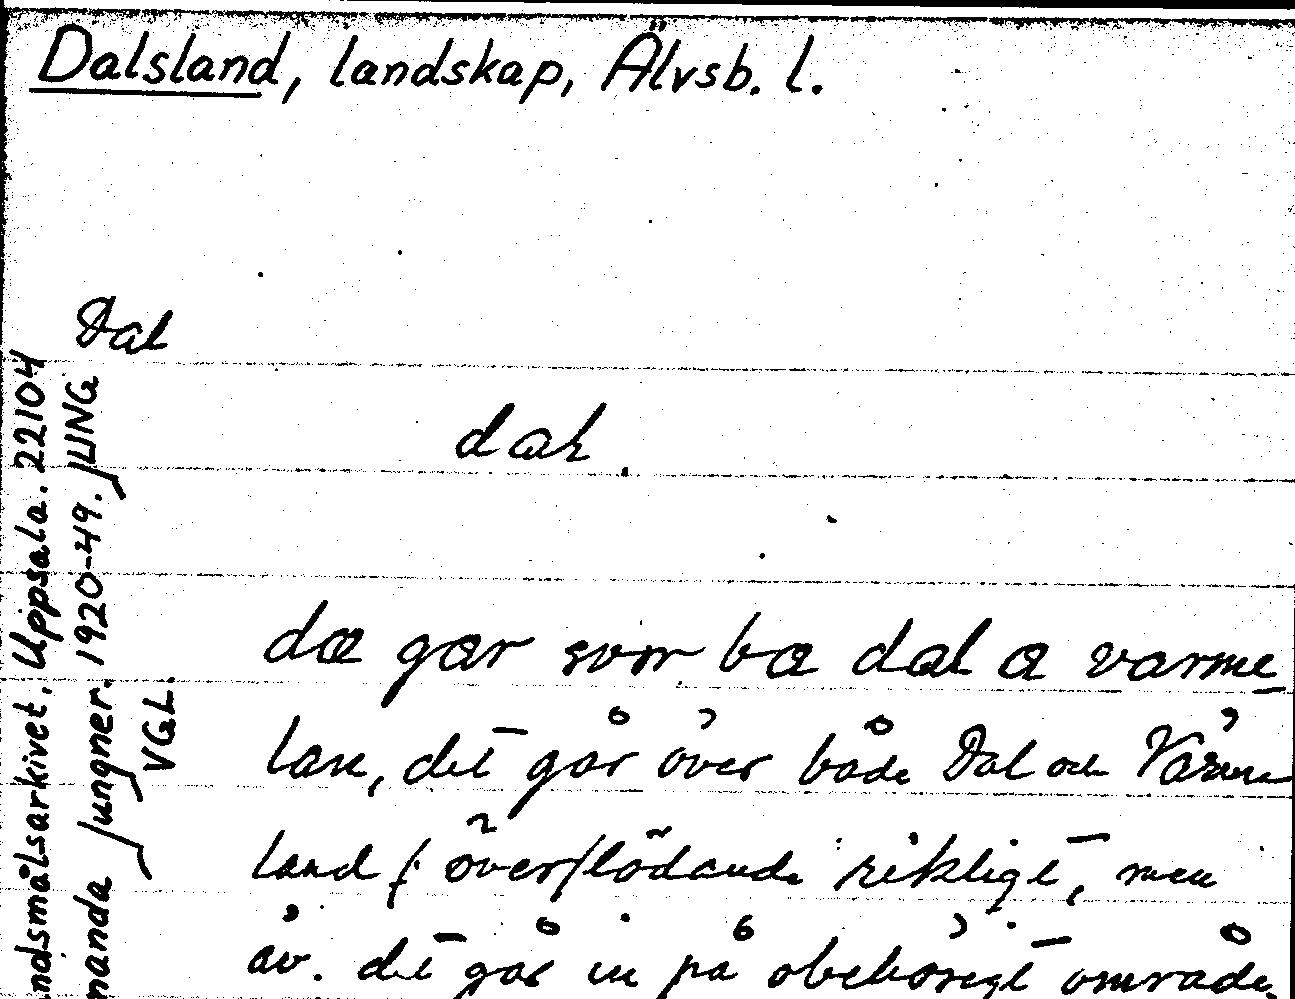 Dalsland, landskap, Älvsb. l.
Dal
dal.
dæ gær svor bæ dal a varme
lan, det går över både Dal och Värme
land f. överflödande rikligt, men
äv. det går in på obehörigt område
ndsmålsarkivet. Uppsala. 22104
nanda Jungner. 1920-49. JUNG
VGL.